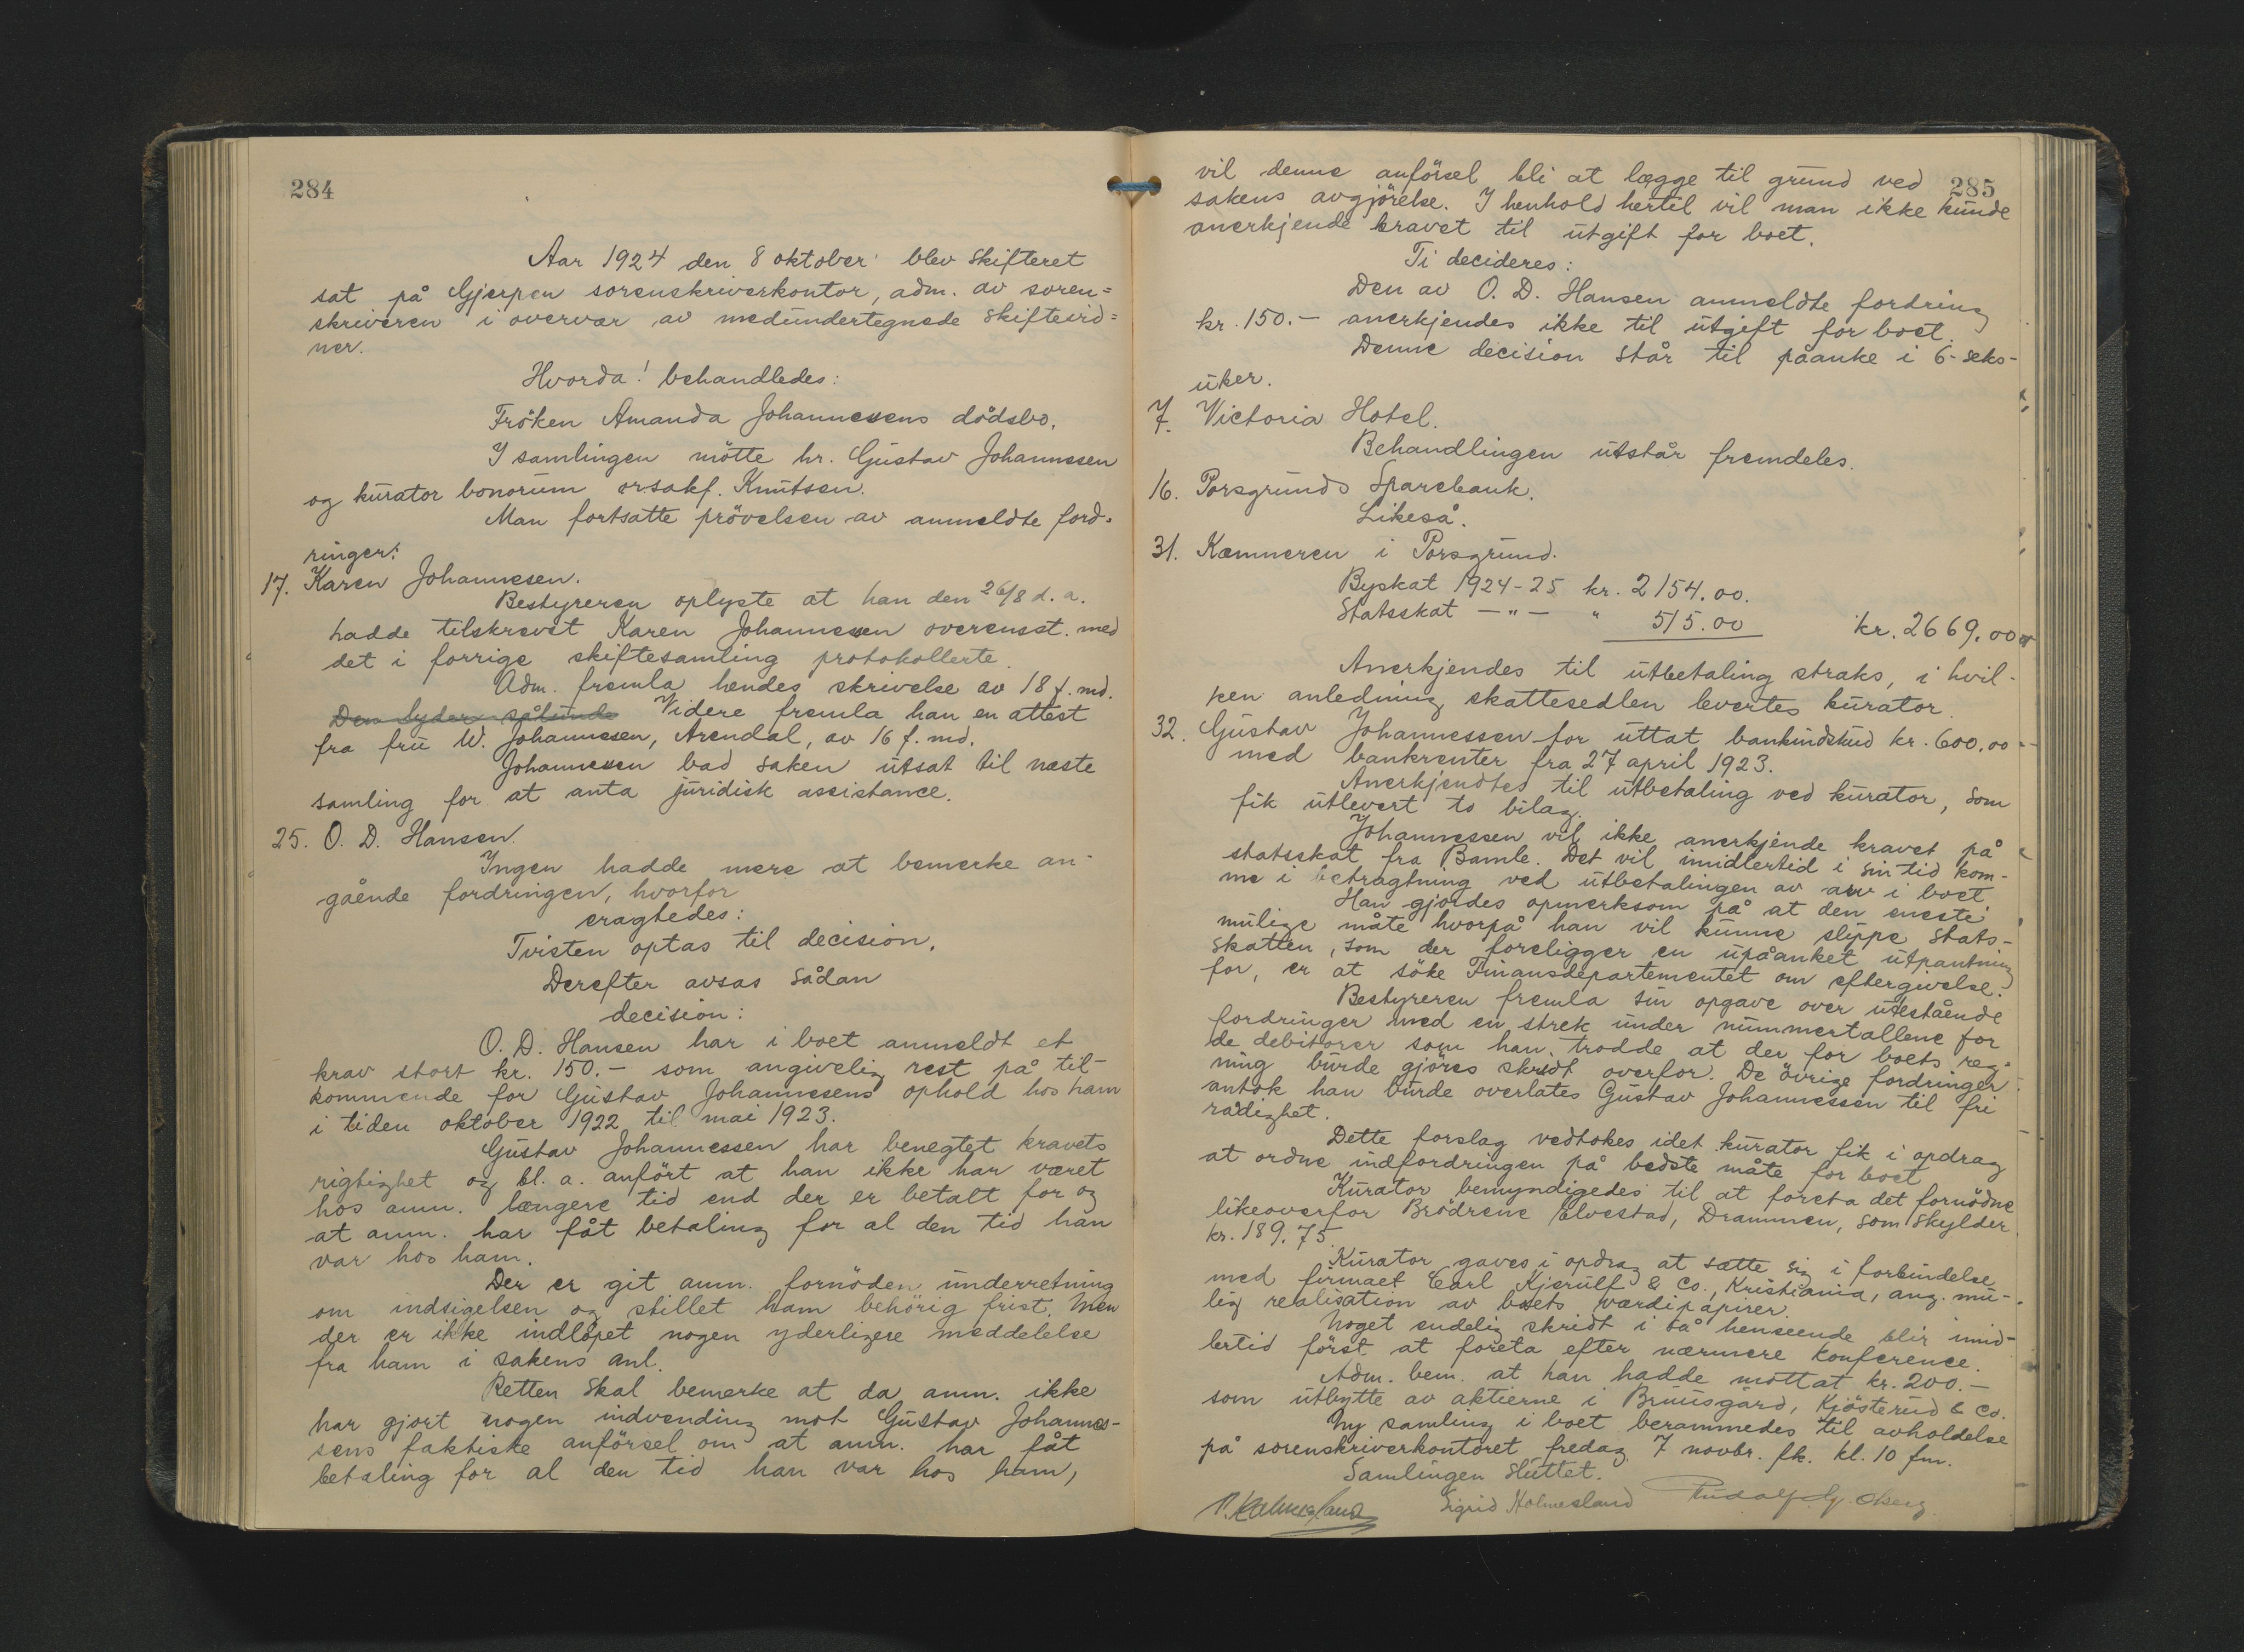 284
Aar 1924 den 8 oktober blev skifteret
sat på Gjerpen sorenskriverkontor, adm. av soren=
skriveren i overvær av medundertegnede skiftevid=
ner.
Hvorda! behandledes:
Fröken Amanda Johannessens dödsbo.
I samlingen mötte hr. Gustav Johannessen
og kurator bonorum orsakf. Knutsen.
Man fortsatte prövelsen av anmeldte ford=
ringer:
17. Karen Johannesen.
Bestyreren oplyste at han den 26/8 d. a.
hadde tilskrevet Karen Johannessen overensst. med
det i forrige skiftesamling protokollerte.
Adm. fremla hendes skrivelse av 18 f. md.
Den lyder sålunde Videre fremla han en attest
fra frü W. Johannesen, Arendal, av 16 f. md.
Johannessen bad saken utsat til næste
samling for at anta juridisk assistance.
25. O. D. Hansen.
Ingen hadde mere at bemerke an-
gående fordringen, hvorfor
eragtedes:
Tvisten optas til decision.
Derefter avsas sådan
decision:
O. D. Hansen har i boet anmeldt et
krav stort kr. 150.- som angivelig rest på til-
kommende for Gustav Johannesens ophold hos ham
i tiden oktober 1922 til mai 1923.
Gustav Johannessen har benegtet kravets
rigtighet og bl. a. anfört at han ikke har været
hos anm. længere tid end der er betalt for og
at anm. har fåt betaling for al den tid han
var hos ham.
Der er git anm. fornöden underretning
om indsigelsen og stillet ham behörig frist. Men
der er ikke indlöpet nogen yderligere meddelelse
fra ham i sakens anl.
Retten skal bemerke at da anm. ikke
har gjort nogen indvending mot Gustav Johannes-
sens faktiske anförsel om at anm. har fåt
betaling for al den tid han var hos ham,
285
vil denne anförsel bli at lægge til grund ved
sakens avgjörelse. I henhold hertil vil man ikke kunde
anerkjende kravet til utgift for boet.
Ti decideres:
Den av O. D. Hansen anmeldte fordring
kr. 150.- anerkjendes ikke til utgift for boet.
Denne decision står til påanke i 6-seks-
uker.
7. Victoria Hotel.
Behandlingen utstår fremdeles.
16. Porsgrunds Sparebank.
Likeså.
31. Kæmneren i Porsgrund.
Byskat 1924-25 kr. 2154.00.
Statsskat -"- " 515.00 kr. 2669.00
Anerkjendes til utbetaling straks, i hvil-
ken anledning skattesedlen levertes kurator.
32. Gustav Johannessen for uttat bankindskud kr. 600.00
med bankrenter fra 27 april 1923.
Anerkjendtes til utbetaling ved kurator, som
fik utlevert to bilag.
Johannessen vil ikke anerkjende kravet på
statsskat fra Bamle. Det vil imidlertid i sin tid kom-
me i betragtning ved utbetalingen av arv i boet
Han gjordes opmerksom på at den eneste
mulige måte hvorpå han vil kunne slippe stats-
skatten, som der foreligger en upåanket utpantning
for, er at söke Finansdepartementet om eftergivelse.
Bestyreren fremla sin opgave over utestående
fordringer med en strek under nummertallene for
de debitorer som han trodde at der for boets reg-
ning burde gjöres skridt overfor. De övrige fordringer
antok han burde overlates Gustav Johannessen til fri
rådighet.
Dette forslag vedtokes idet kurator fik i opdrag
at ordne indfordringen på bedste måte for boet
Kurator bemyndigedes til at foreta det fornödne
likeoverfor Brödrene Elvestad, Drammen, som skylder
kr. 189.75.
Kurator gaves i opdrag at sætte sig i forbindelse
med firmaet Carl Kjerulf & Co., Kristiania, ang. mu-
lig realisation av boets værdipapirer.
Noget endelig skridt i så henseende blir imid-
lertid först at foreta efter nærmere konference.
Adm. bem. at han hadde mottat kr. 200.-
som utbytte av aktierne i Bruusgård, Kjösterud & Co.
Ny samling i boet berammedes til avholdelse
på sorenskriverkontoret fredag 7 novbr. fk. kl. 10 fm.
Samlingen sluttet.
Sigrid Holmesland